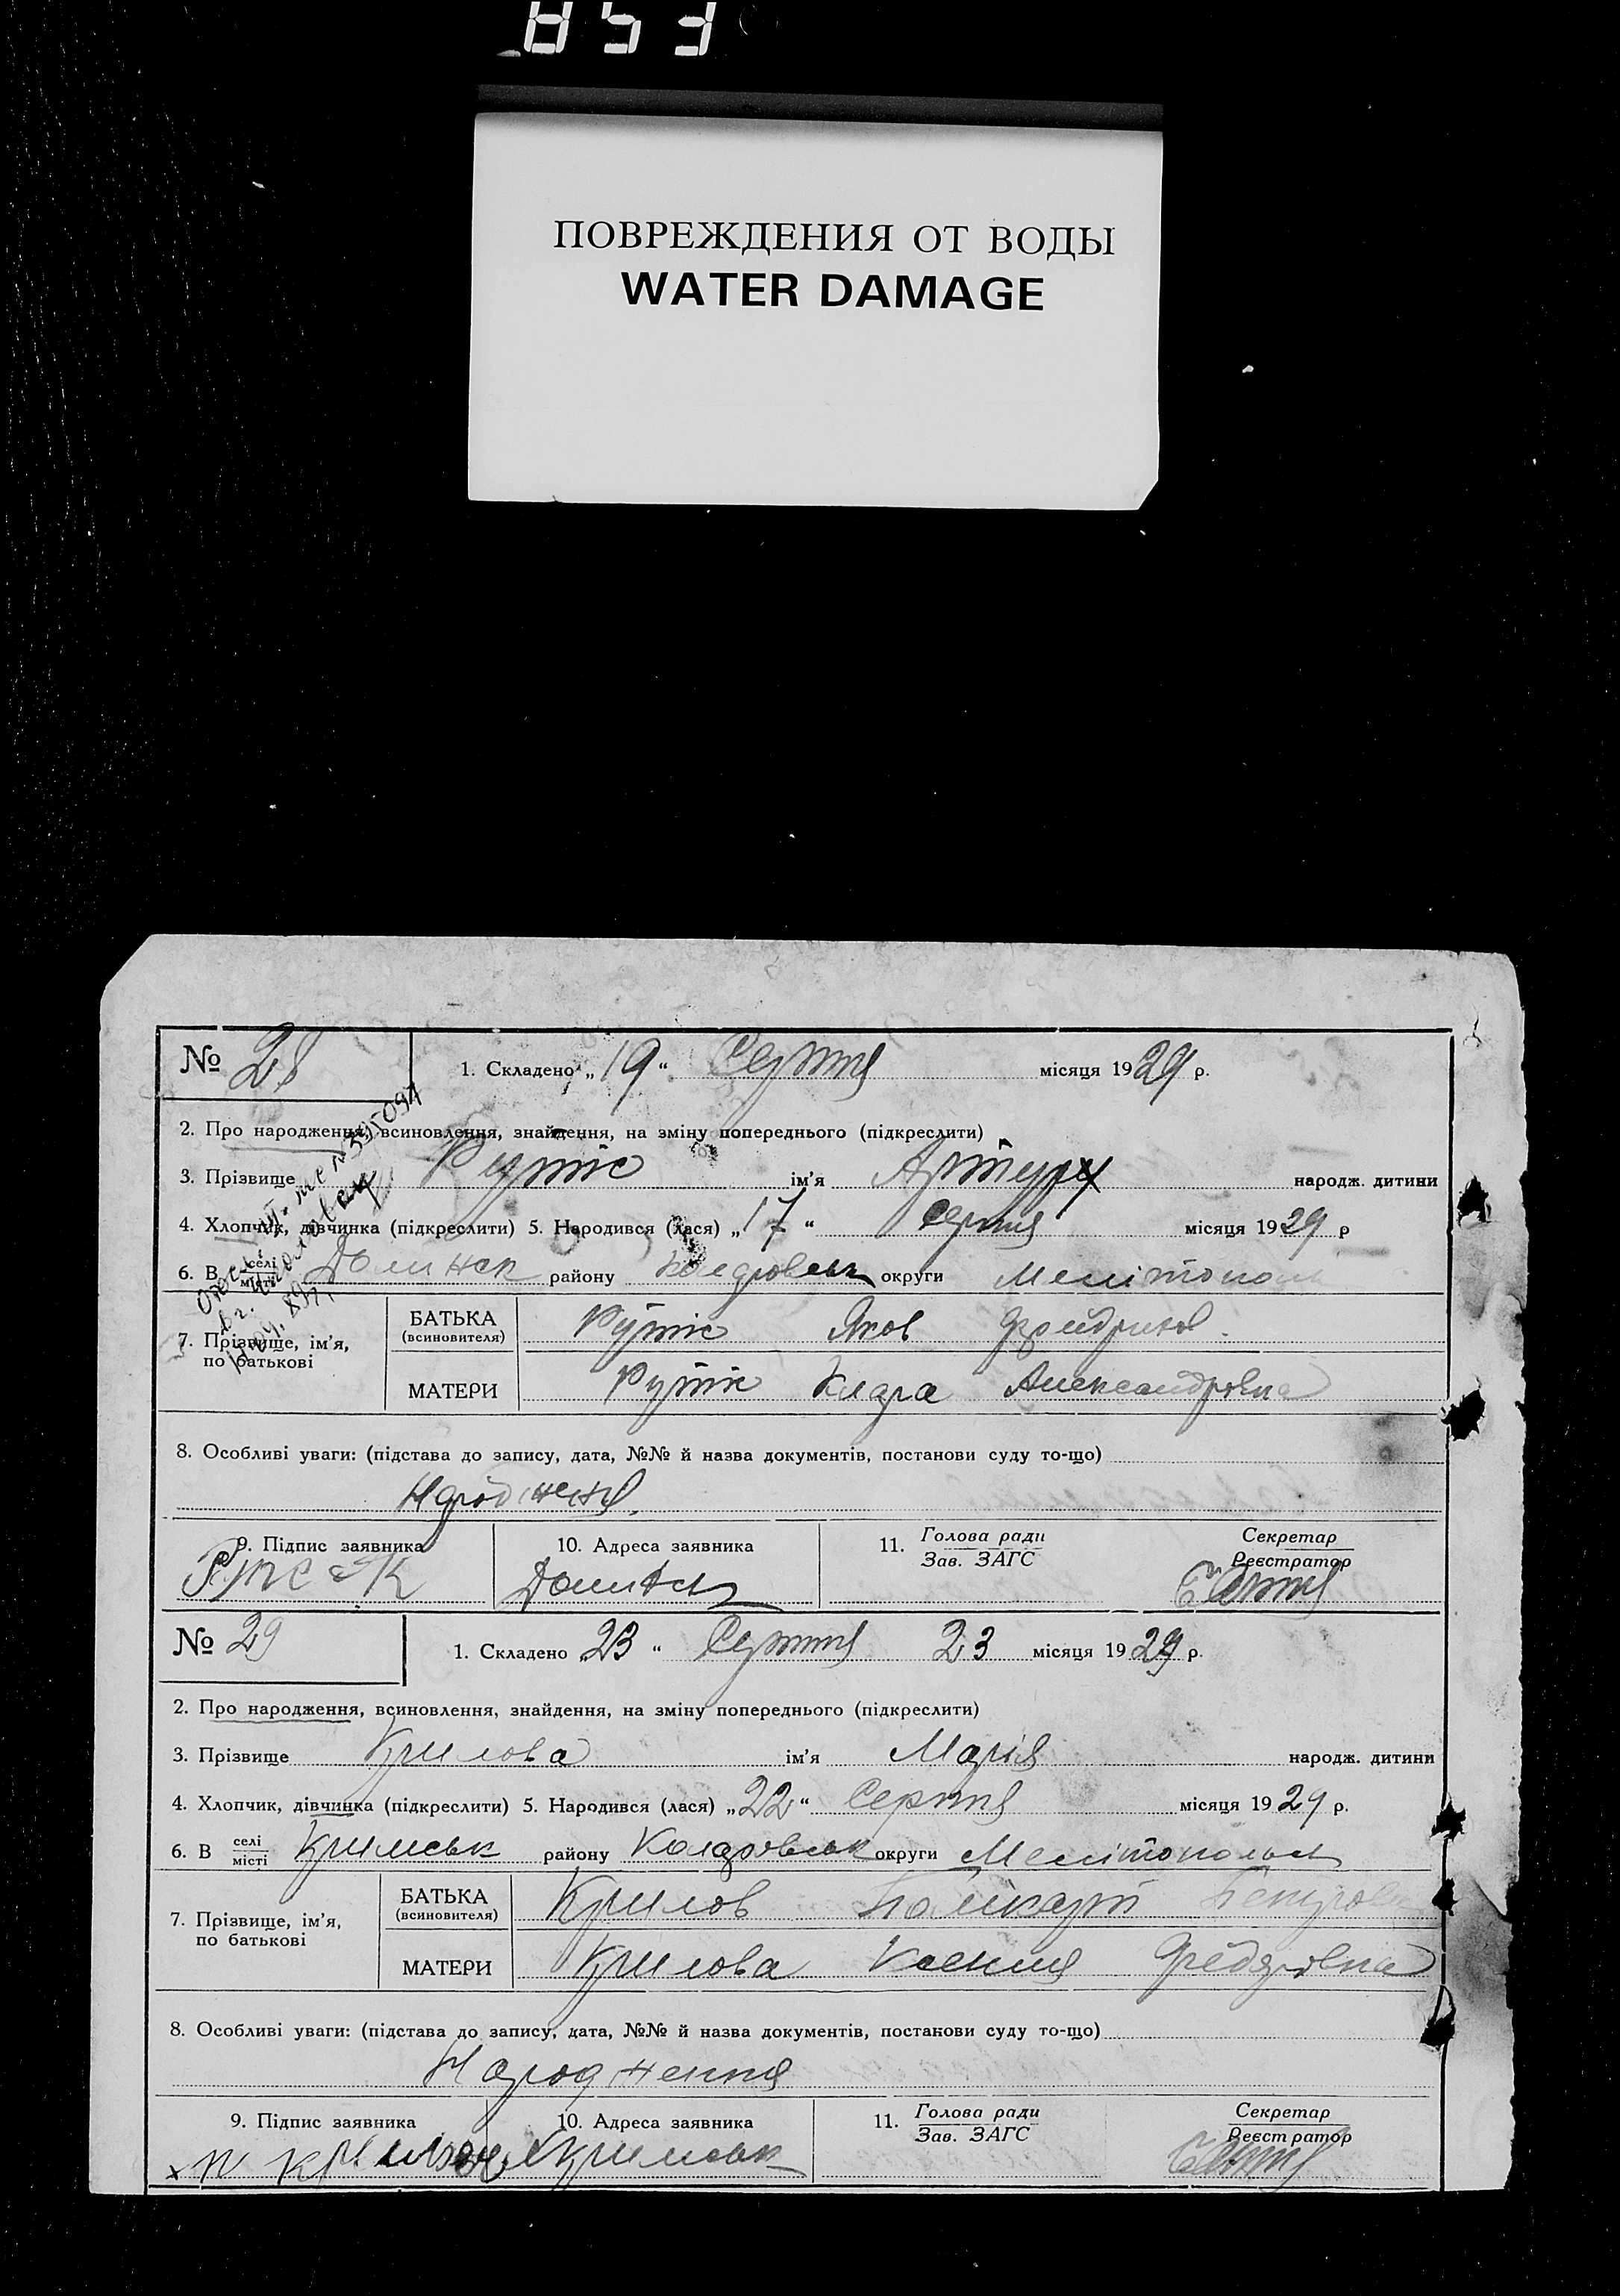 853
ПОВРЕЖДЕНИЯ ОТ ВОДЫ
WATER DAMAGE
№ 28
1. Складено „19“ Серпня місяця 1929 р.
2. Про народження, всиновлення, знайдення, на зміну попереднього (підкреслити)
3. Прізвище Рутіс ім'я Артур народж. дитини
4. Хлопчик, дівчинка (підкреслити) 5. Народився (лася) „17“ Серпня місяця 1929 р
6. В селі місті Долинск району округи Мелітополь
7. Прізвище, ім'я, по батькові
БАТЬКА (всиновителя) Рутіс Яков
МАТЕРИ Рутіс Клара Александровна
8. Особливі уваги: (підстава до запису, дата, №№ й назва документів, постанови суду то-що)
Народження
9. Підпис заявника
10. Адреса заявника
11. Голова ради Зав. ЗАГС
Секретар Реєстратор
№ 29
1. Складено 23 “ Серпня 23 місяця 1929 р.
2. Про народження, всиновлення, знайдення, на зміну попереднього (підкреслити)
3. Прізвище Крилова ім'я Марія народж. дитини
4. Хлопчик, дівчинка (підкреслити) 5. Народився (лася) „22“ Серпня місяця 1929 р.
6. В селі місті Кримськ району округи Мелітопольск
7. Прізвище, ім'я, по батькові
БАТЬКА (всиновителя) Крилов
МАТЕРИ Крилова Ксения
8. Особливі уваги: (підстава до запису, дата, №№ й назва документів, постанови суду то-що)
Народження
9. Підпис заявника
10. Адреса заявника
Кримськ
11. Голова ради Зав. ЗАГС
Секретар Реєстратор